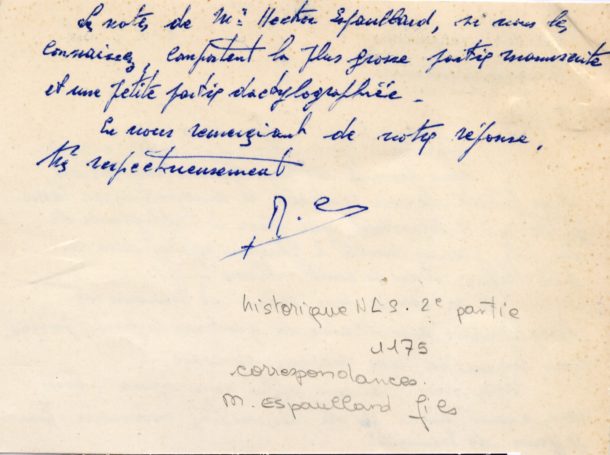 Les notes de Mr Hector Espaullard, si vous les
connaissez, comportent la plus grosse partie manuscrite
et une petite partie dactylographiée.
En vous remerciant de votre réponse,
Très respectueusement
historique NLS. 2e partie
1175
correspondances.
M. Espaullard fils